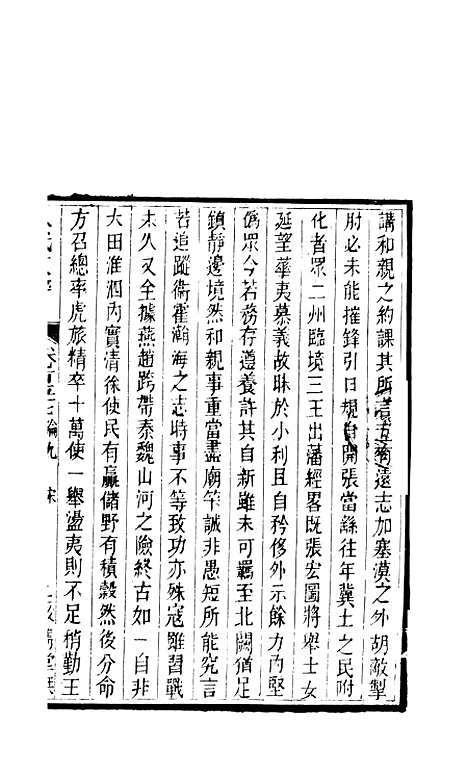 講和親之約課其所言互有遠志加塞漠之外胡敵掣
肘必未能摧鋒引日規自開張當繇往年冀土之民附
化者眾二州臨境三王出藩經畧既張宏圖將舉士女
延望華夷慕義故昧於小利且自矜侈外示餘力內堅
僞眾今若務存遵養許其自新雖未可羈至北闕猶足
鎮靜邊境然和親事重當盡廟筭誠非愚短所能究言
若追蹤衞霍瀚海之志時事不等致功亦殊寇雖習戰
未久又全據燕趙跨帶秦魏山河之險終古如一自非
大田淮泗內實清徐使民有贏儲野有積穀然後分命
方召總率虎旅精卒十萬使一舉盪夷則不足稍勤王
論九 宋